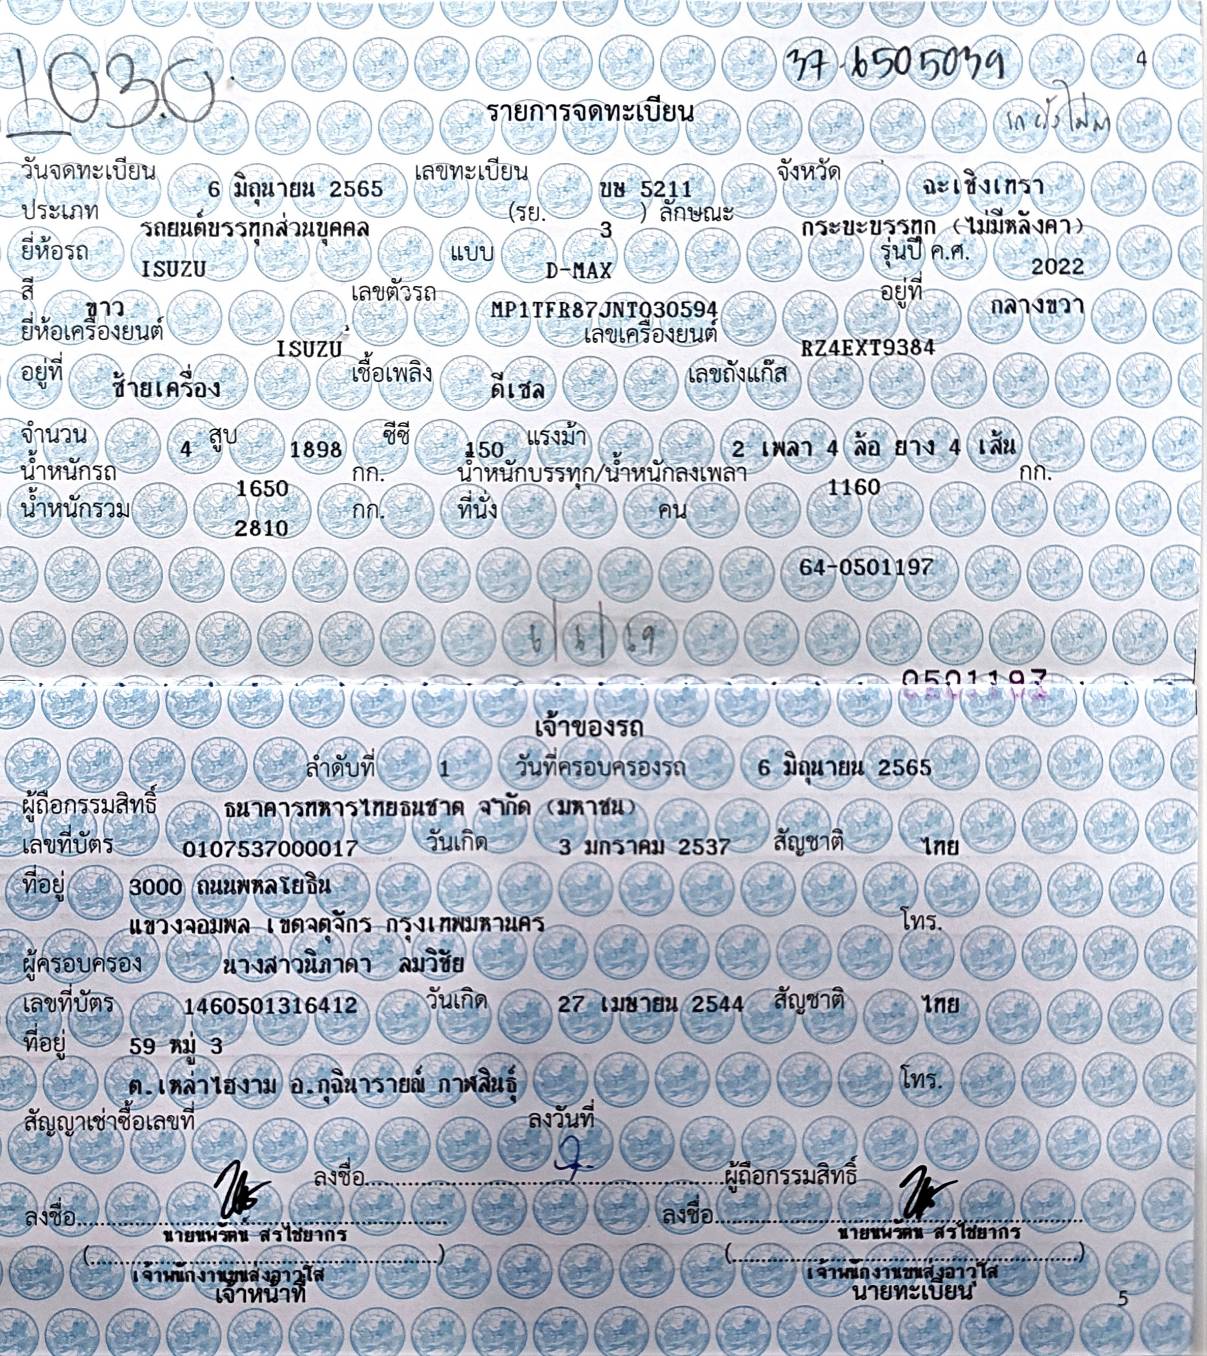 1030.
37-6505039
4
รายการจดทะเบียน
รถยังไม่มา
วันจดทะเบียน 6 มิถุนายน 2565 เลขทะเบียน ขษ 5211 จังหวัด ฉะเชิงเทรา
ประเภท รถยนต์บรรทุกส่วนบุคคล (รย. 3 ) ลักษณะ กระบะบรรทุก (ไม่มีหลังคา)
ยี่ห้อรถ ISUZU แบบ D-MAX รุ่นปี ค.ศ. 2022
สี ขาว เลขตัวรถ MP1TFR87JNT030594 อยู่ที่ กลางขวา
ยี่ห้อเครื่องยนต์ ISUZU เลขเครื่องยนต์ RZ4EXT9384
อยู่ที่ ซ้ายเครื่อง เชื้อเพลิง ดีเซล เลขถังแก๊ส
จำนวน 4 สูบ 1898 ซีซี 150 แรงม้า 2 เพลา 4 ล้อ ยาง 4 เส้น
น้ำหนักรถ 1650 กก. น้ำหนักบรรทุก/น้ำหนักลงเพลา 1160 กก.
น้ำหนักรวม 2810 กก. ที่นั่ง คน
64-0501197
6/6/69
0501197
เจ้าของรถ
ลำดับที่ 1 วันที่ครอบครองรถ 6 มิถุนายน 2565
ผู้ถือกรรมสิทธิ์ ธนาคารทหารไทยธนชาต จำกัด (มหาชน)
เลขที่บัตร 0107537000017 วันเกิด 3 มกราคม 2537 สัญชาติ ไทย
ที่อยู่ 3000 ถนนพหลโยธิน
แขวงจอมพล เขตจตุจักร กรุงเทพมหานคร โทร.
ผู้ครอบครอง นางสาวนิภาดา ลมวิชัย
เลขที่บัตร 1460501316412 วันเกิด 27 เมษายน 2544 สัญชาติ ไทย
ที่อยู่ 59 หมู่ 3
ต.เหล่าไฮงาม อ.กุฉินารายณ์ กาฬสินธุ์ โทร.
สัญญาเช่าซื้อเลขที่ ลงวันที่
ลงชื่อ..........ผู้ถือกรรมสิทธิ์
ลงชื่อ.......... ลงชื่อ..........
นายนพรัตน์ สรไชยากร นายนพรัตน์ สรไชยากร
(..........) (..........)
เจ้าพนักงานขนส่งอาวุโส เจ้าพนักงานขนส่งอาวุโส
เจ้าหน้าที่ นายทะเบียน
5